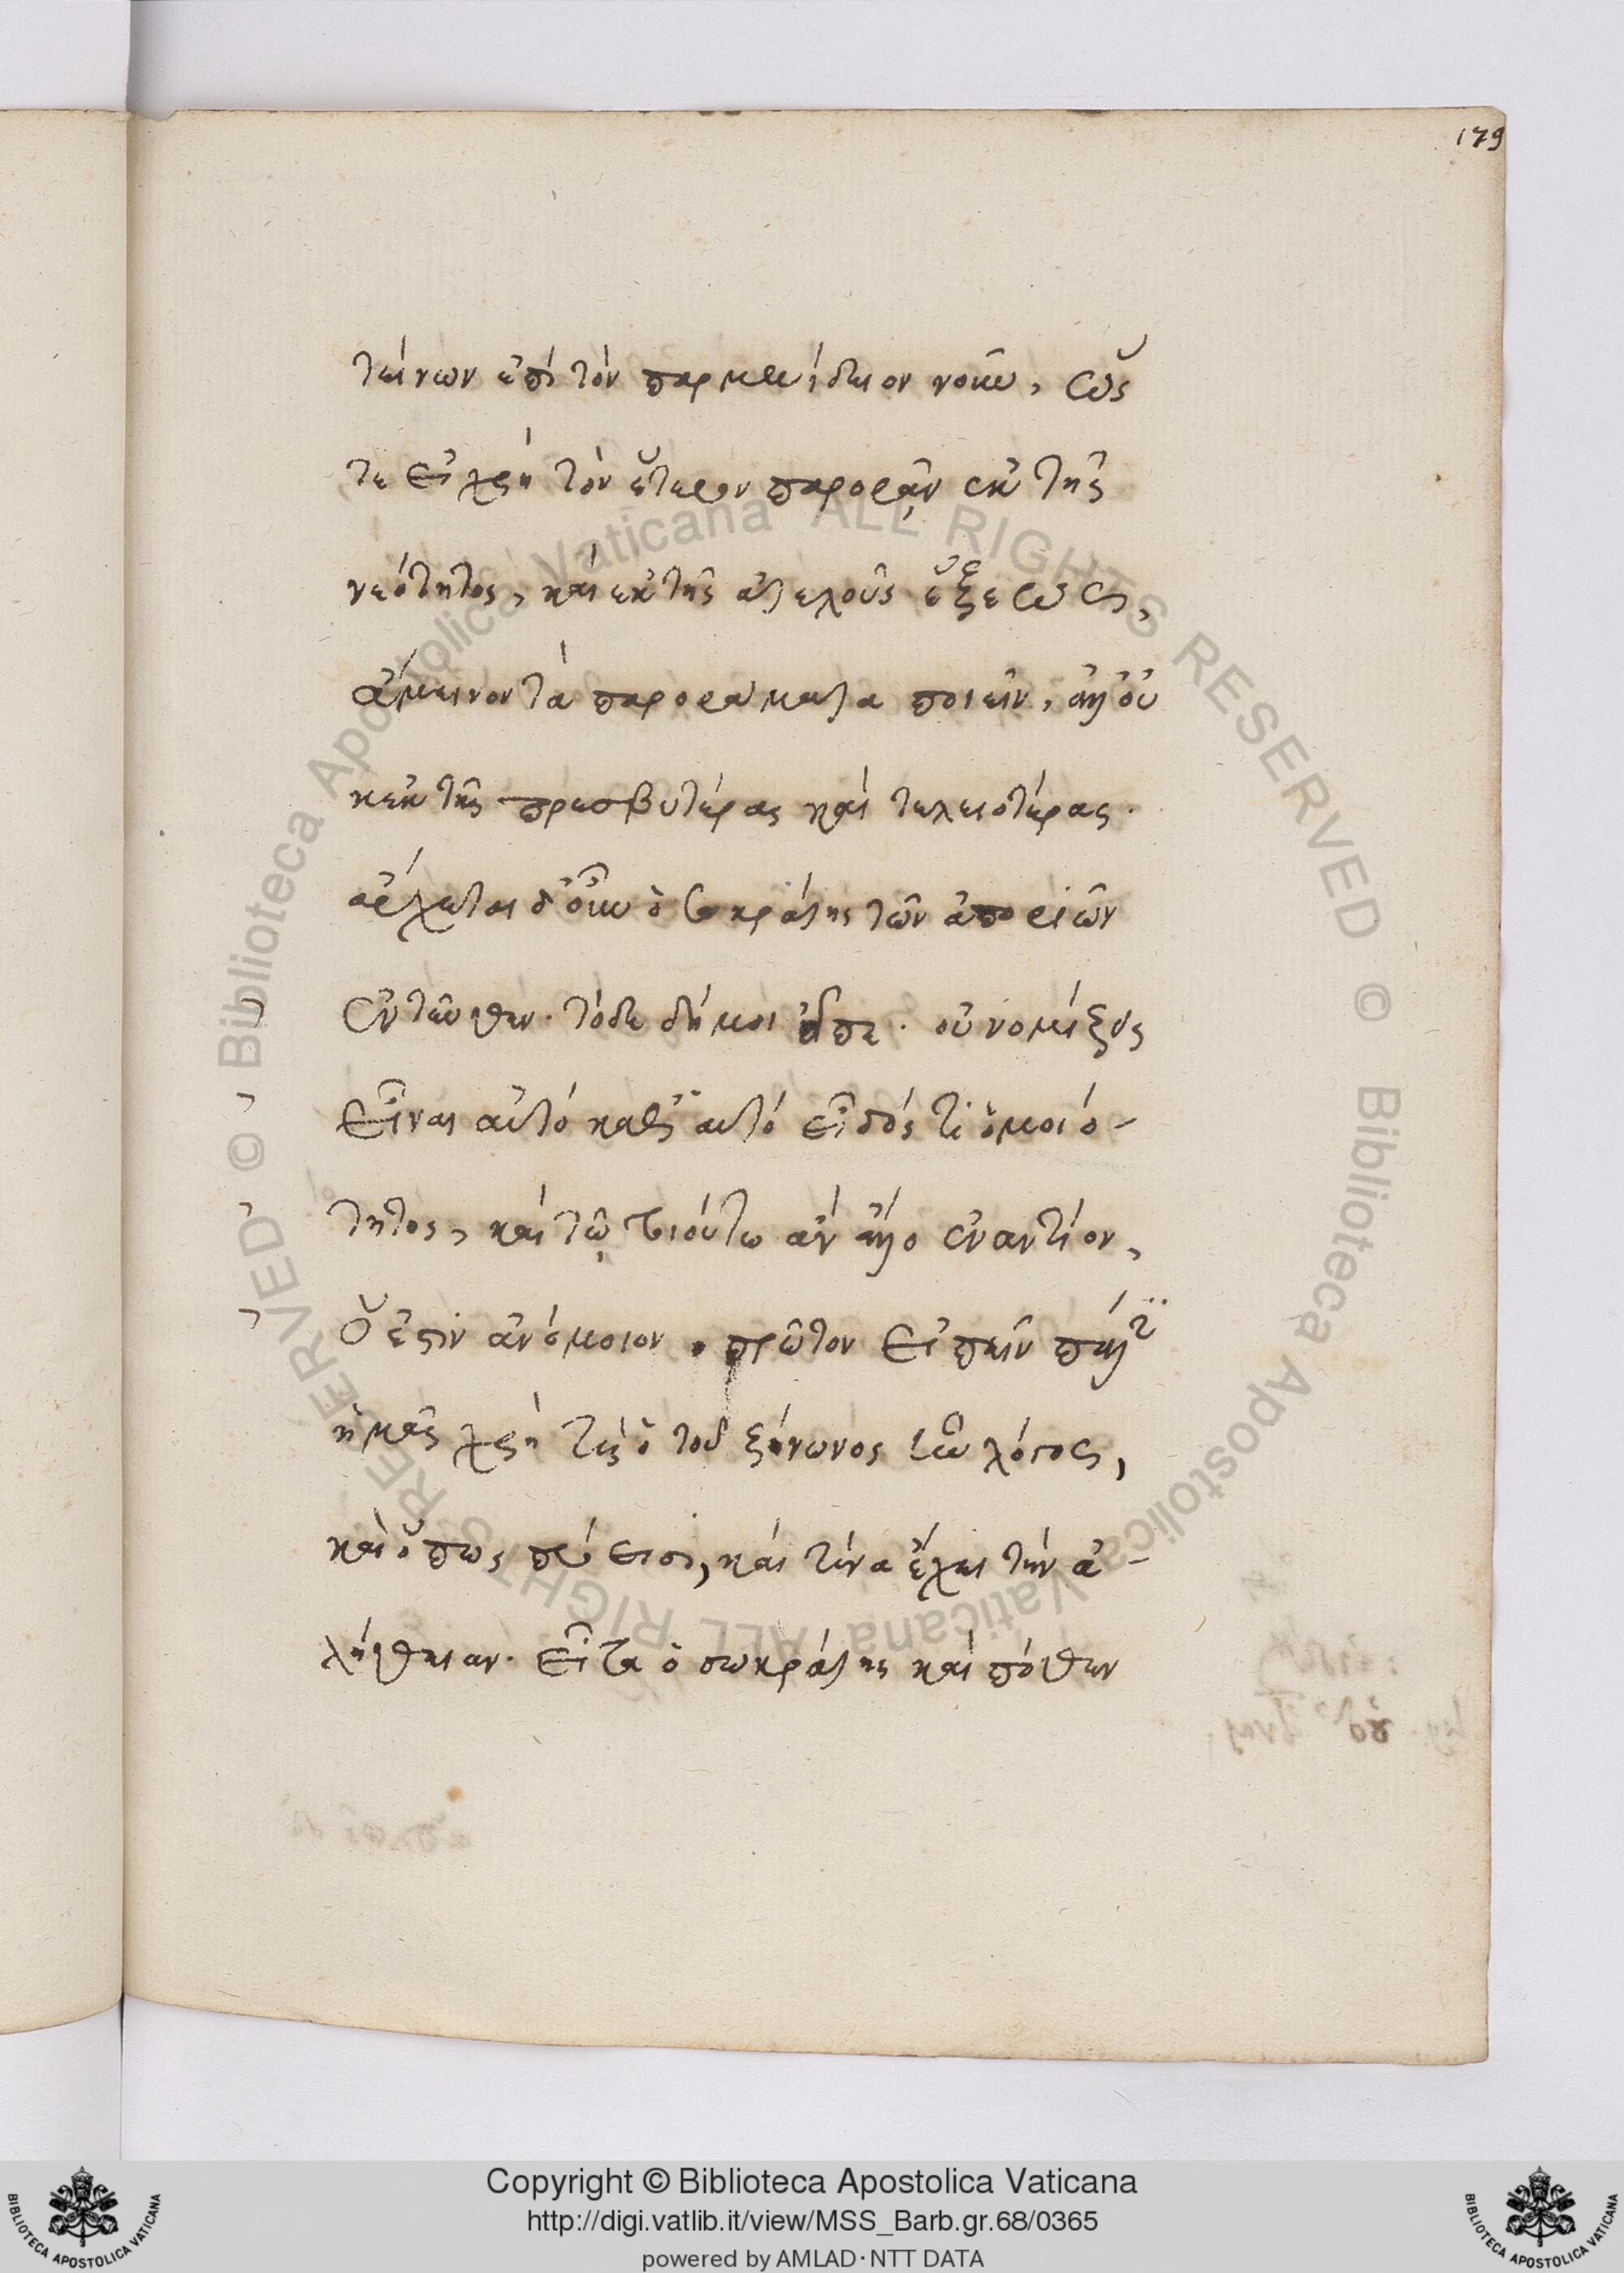 179
τείνων ἐπὶ τὸν παρμενίδειον νοῦν, ὥς
τε εἰ χρὴ τὸν ἕτερον παρορᾷν ἐκ τῆς
νεότητος, καὶ ἐκ τῆς ἀτελοῦς ἕξεως,
ἄμεινον τὰ παροράματα ποιεῖν, ἀλλ' οὐ
κ ἐκ τῆς πρεσβυτέρας καὶ τελειοτέρας.
ἄρχεται δ' οὖν ὁ σωκράτης τῶν ἀποριῶν
ἐντεῦθεν. τόδε δή μοι εἰπέ. οὐ νομίζεις
εἶναι αὐτὸ καθ' αὑτὸ εἶδός τι ὁμοιό-
τητος, καὶ τῷ τοιούτω αὖ ἄλλο ἐναντίον,
ὅ ἐστιν ἀνόμοιον. πρῶτον εἰπεῖν πάλιν
ἡμᾶς χρὴ τίς ὁ τοῦ ζήνωνος ἦν λόγος,
καὶ ὅπως πρόεισι, καὶ τίνα ἔχει τὴν ἀ-
λήθειαν. εἶτα ὁ σωκράτης καὶ πόθεν
Copyright © Biblioteca Apostolica Vaticana
http://digi.vatlib.it/view/MSS_Barb.gr.68/0365
powered by AMLAD·NTT DATA
BIBLIOTECA APOSTOLICA VATICANA
BIBLIOTECA APOSTOLICA VATICANA
© Biblioteca Apostolica Vaticana ALL RIGHTS RESERVED
© Biblioteca Apostolica Vaticana ALL RIGHTS RESERVED